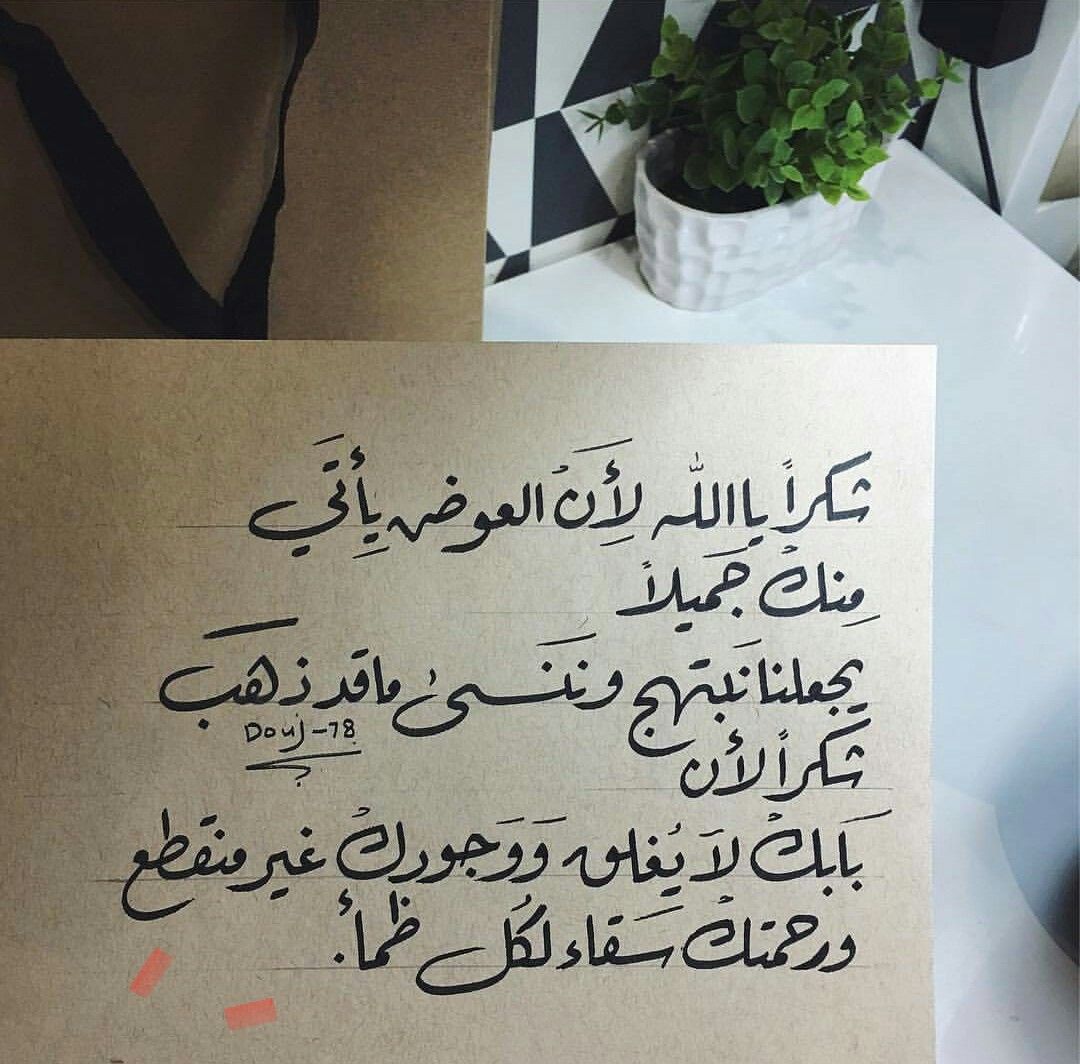 شكراً يا الله لِأَنَ العوض يِأتَي
مِنكْ جَميلاً
يجعلنا نَبتهج ونَنَسىٰ ما قد ذهَبَ
Douj-78
شَكراً لأن
بَابكْ لاَ يُغلق وَوَجودكْ غير منقَطع
ورحمتكْ سَقاء لكُل ظمأ.